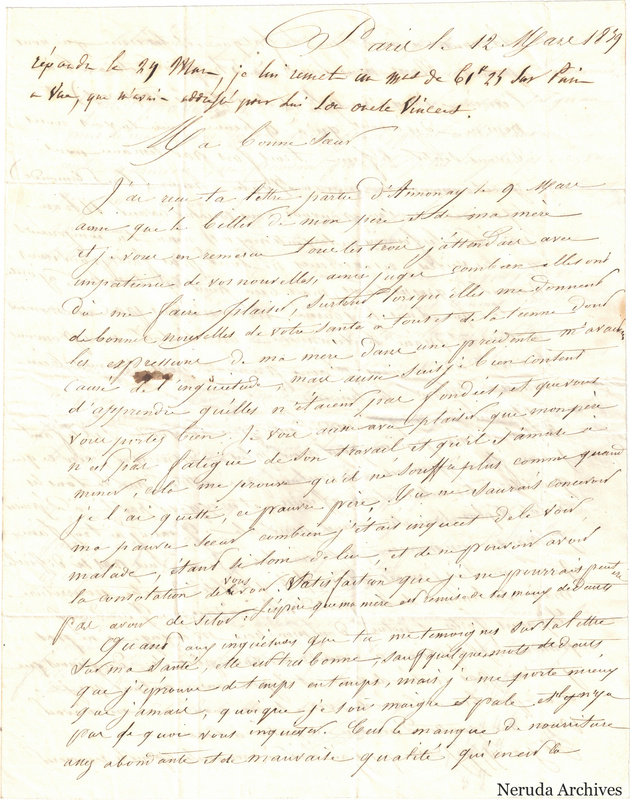 Paris le 12 Mars 1839
répondu le 29 Mars, je lui remet un mat de 61f 25 sur Paris
a vue, que m'avait addressé pour lui Son oncle Vincent.
Ma bonne Sœur
J'ai reçu ta lettre partie d'Annonay le 9 Mars
ainsi que le billet de mon père et de ma mère
et je vous en remercie tous les trois j'attendais avec
impatience de vos nouvelles, ainsi juge combien elles ont
dû me faire plaisir, surtout lorsqu'elles me donnent
de bonnes nouvelles de votre santé à tous et de la tienne dont
les expressions de ma mère dans une précédente m'avait
causé de l'inquietude, mais aussi suis je bien content
d'apprendre qu'elles n'étaient pas fondées, et que vous
vous portez bien. Je vois aussi avec plaisir que mon père
n'est pas fatigué de son travail et qu'il s'amuse a
miner, cela me prouve qu'il ne souffre plus comme quand
je l'ai quitté, ce pauvre père. Tu ne saurais concevoir
ma pauvre sœur combien j'étais inquiet de le voir
malade, étant si loin de lui et de ne pouvoir avoir
la consolation de vous voir Satisfaction que je ne pourrais peut être
pas avoir de sitot. j'espère que ma mère est remise de ses maux de dents
Quand aux inquietudes que tu me temoignes sur ta lettre
sur ma santé, elle est très bonne, sauf quelques maux de dents
que j'éprouve de temps en temps, mais je me porte mieux
que jamais, quoique je sois maigre et pale et il n'y a
pas de quoi vous inquieter. C'est le manque de nourriture
assez abondante et de mauvaise qualité qui m'est la
Neruda Archives